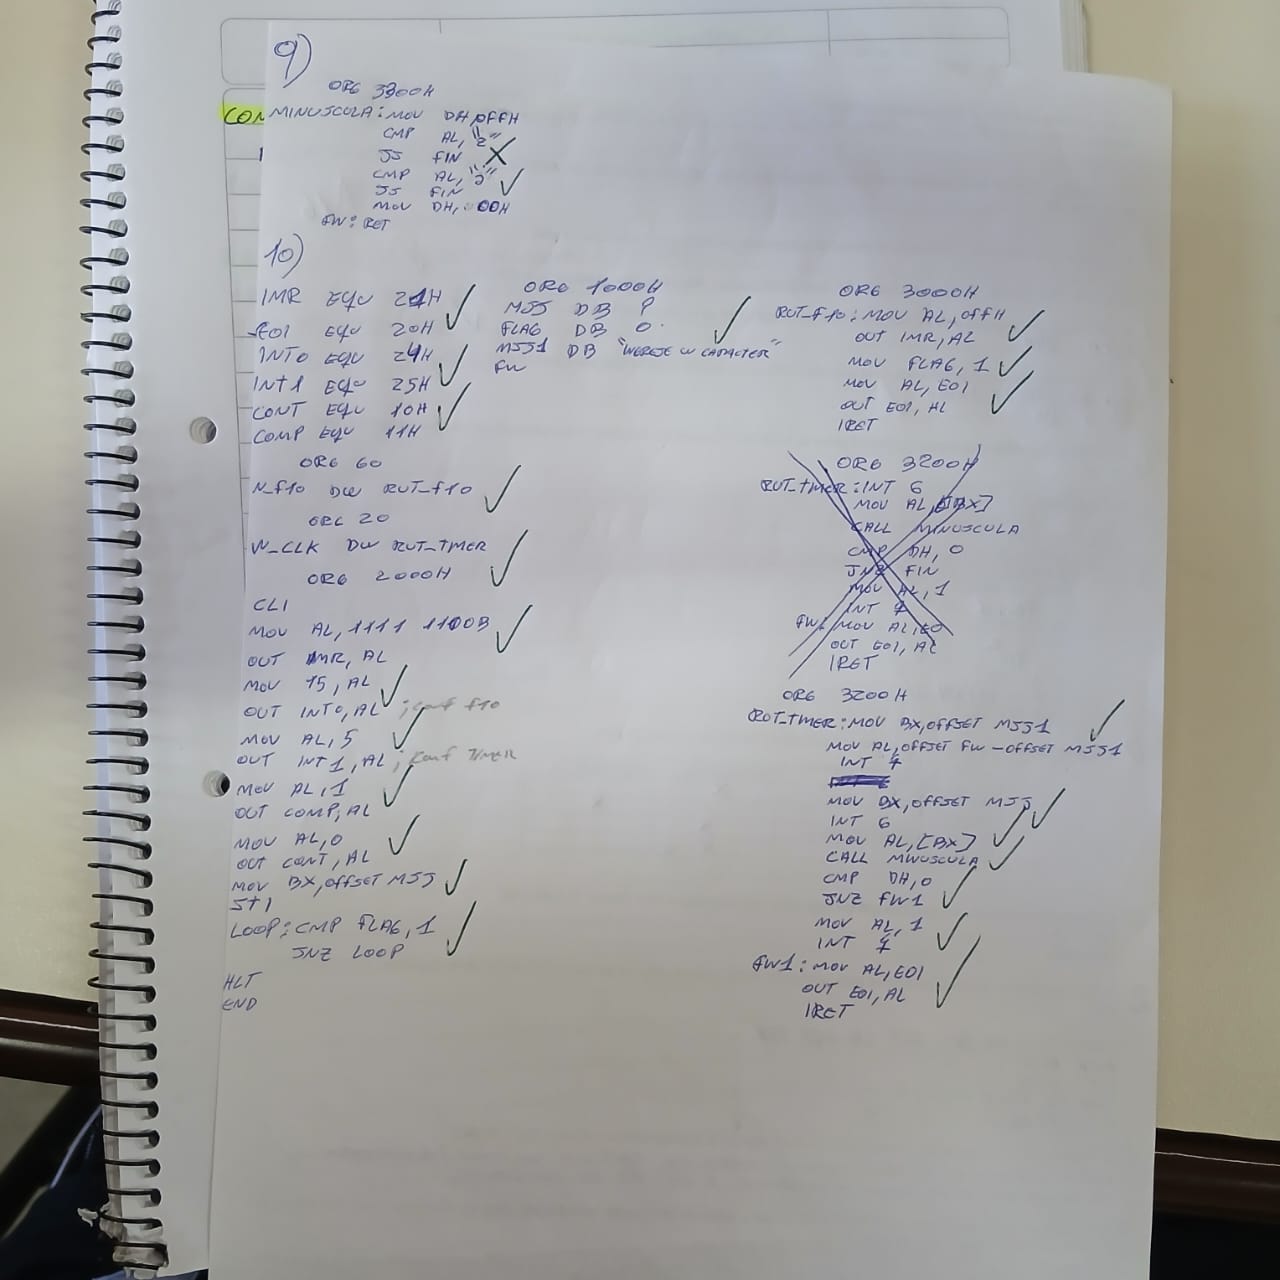 9)
ORG 3300H
CON
MINUSCULA: MOV DH, 0FFH
CMP AL, "z"
JS FIN
CMP AL,
JS FIN
MOV DH, 00H
FIN: RET
10)
IMR EQU 21H
EOI EQU 20H
INT0 EQU 24H
INT1 EQU 25H
CONT EQU 10H
COMP EQU 11H
ORG 60
N_F10 DW RUT_F10
ORG 20
N_CLK DW RUT_TMER
ORG 2000H
CLI
MOV AL, 1111 1100B
OUT IMR, AL
MOV 15, AL
OUT INT0, AL ; conf f10
MOV AL, 5
OUT INT1, AL ; conf TIMER
MOV AL, 1
OUT COMP, AL
MOV AL, 0
OUT CONT, AL
MOV BX, OFFSET MSJ
STI
LOOP: CMP FLAG, 1
JNZ LOOP
HLT
END
ORG 1000H
MSJ DB ?
FLAG DB 0
MSJ1 DB "INGRESE UN CARACTER"
FIN
ORG 3000H
RUT_F10: MOV AL, 0FFH
OUT IMR, AL
MOV FLAG, 1
MOV AL, EOI
OUT EOI, AL
IRET
ORG 3200H
RUT_TMER: INT 6
MOV AL, [BX]
CALL MINUSCULA
CMP DH, 0
JNZ FIN
MOV AL, 1
INT 7
FIN: MOV AL, EO
OUT EOI, AL
IRET
ORG 3200H
ROT_TMER: MOV BX, OFFSET MSJ1
MOV AL, OFFSET FIN - OFFSET MSJ1
INT 7
MOV BX, OFFSET MSJ
INT 6
MOV AL, [BX]
CALL MINUSCULA
CMP DH, 0
JNZ FIN1
MOV AL, 1
INT 7
FIN1: MOV AL, EOI
OUT EOI, AL
IRET